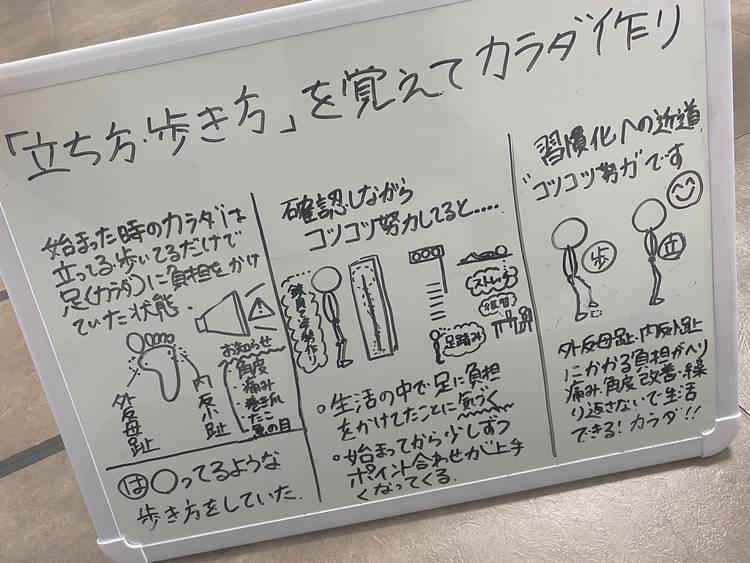 「立ち方・歩き方」を覚えてカラダ作り
始まった時のカラダは
立ってる・歩いてるだけで
足(カラダ)に負担をかけ
ていた状態
お知らせ
角度
痛み
巻き爪
たこ
魚の目
外反母趾
内反小趾
は〇ってるような
歩き方をしていた
確認しながら
コツコツ努力してると....
ストレッチ
足踏み
○生活の中で足に負担
をかけてたことに気づく
○始まってから少しずつ
ポイント合わせが上手
くなってくる
習慣化への近道
"コツコツ努力"です
歩
立
外反母趾、内反小趾
にかかる負担がヘり
痛み、角度改善・繰
り返さないで生活
できる!カラダ!!